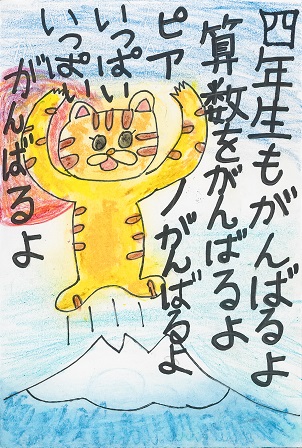 四年生もがんばるよ
算数をがんばるよ
ピアノがんばるよ
いっぱい
いっぱい
がんばるよ